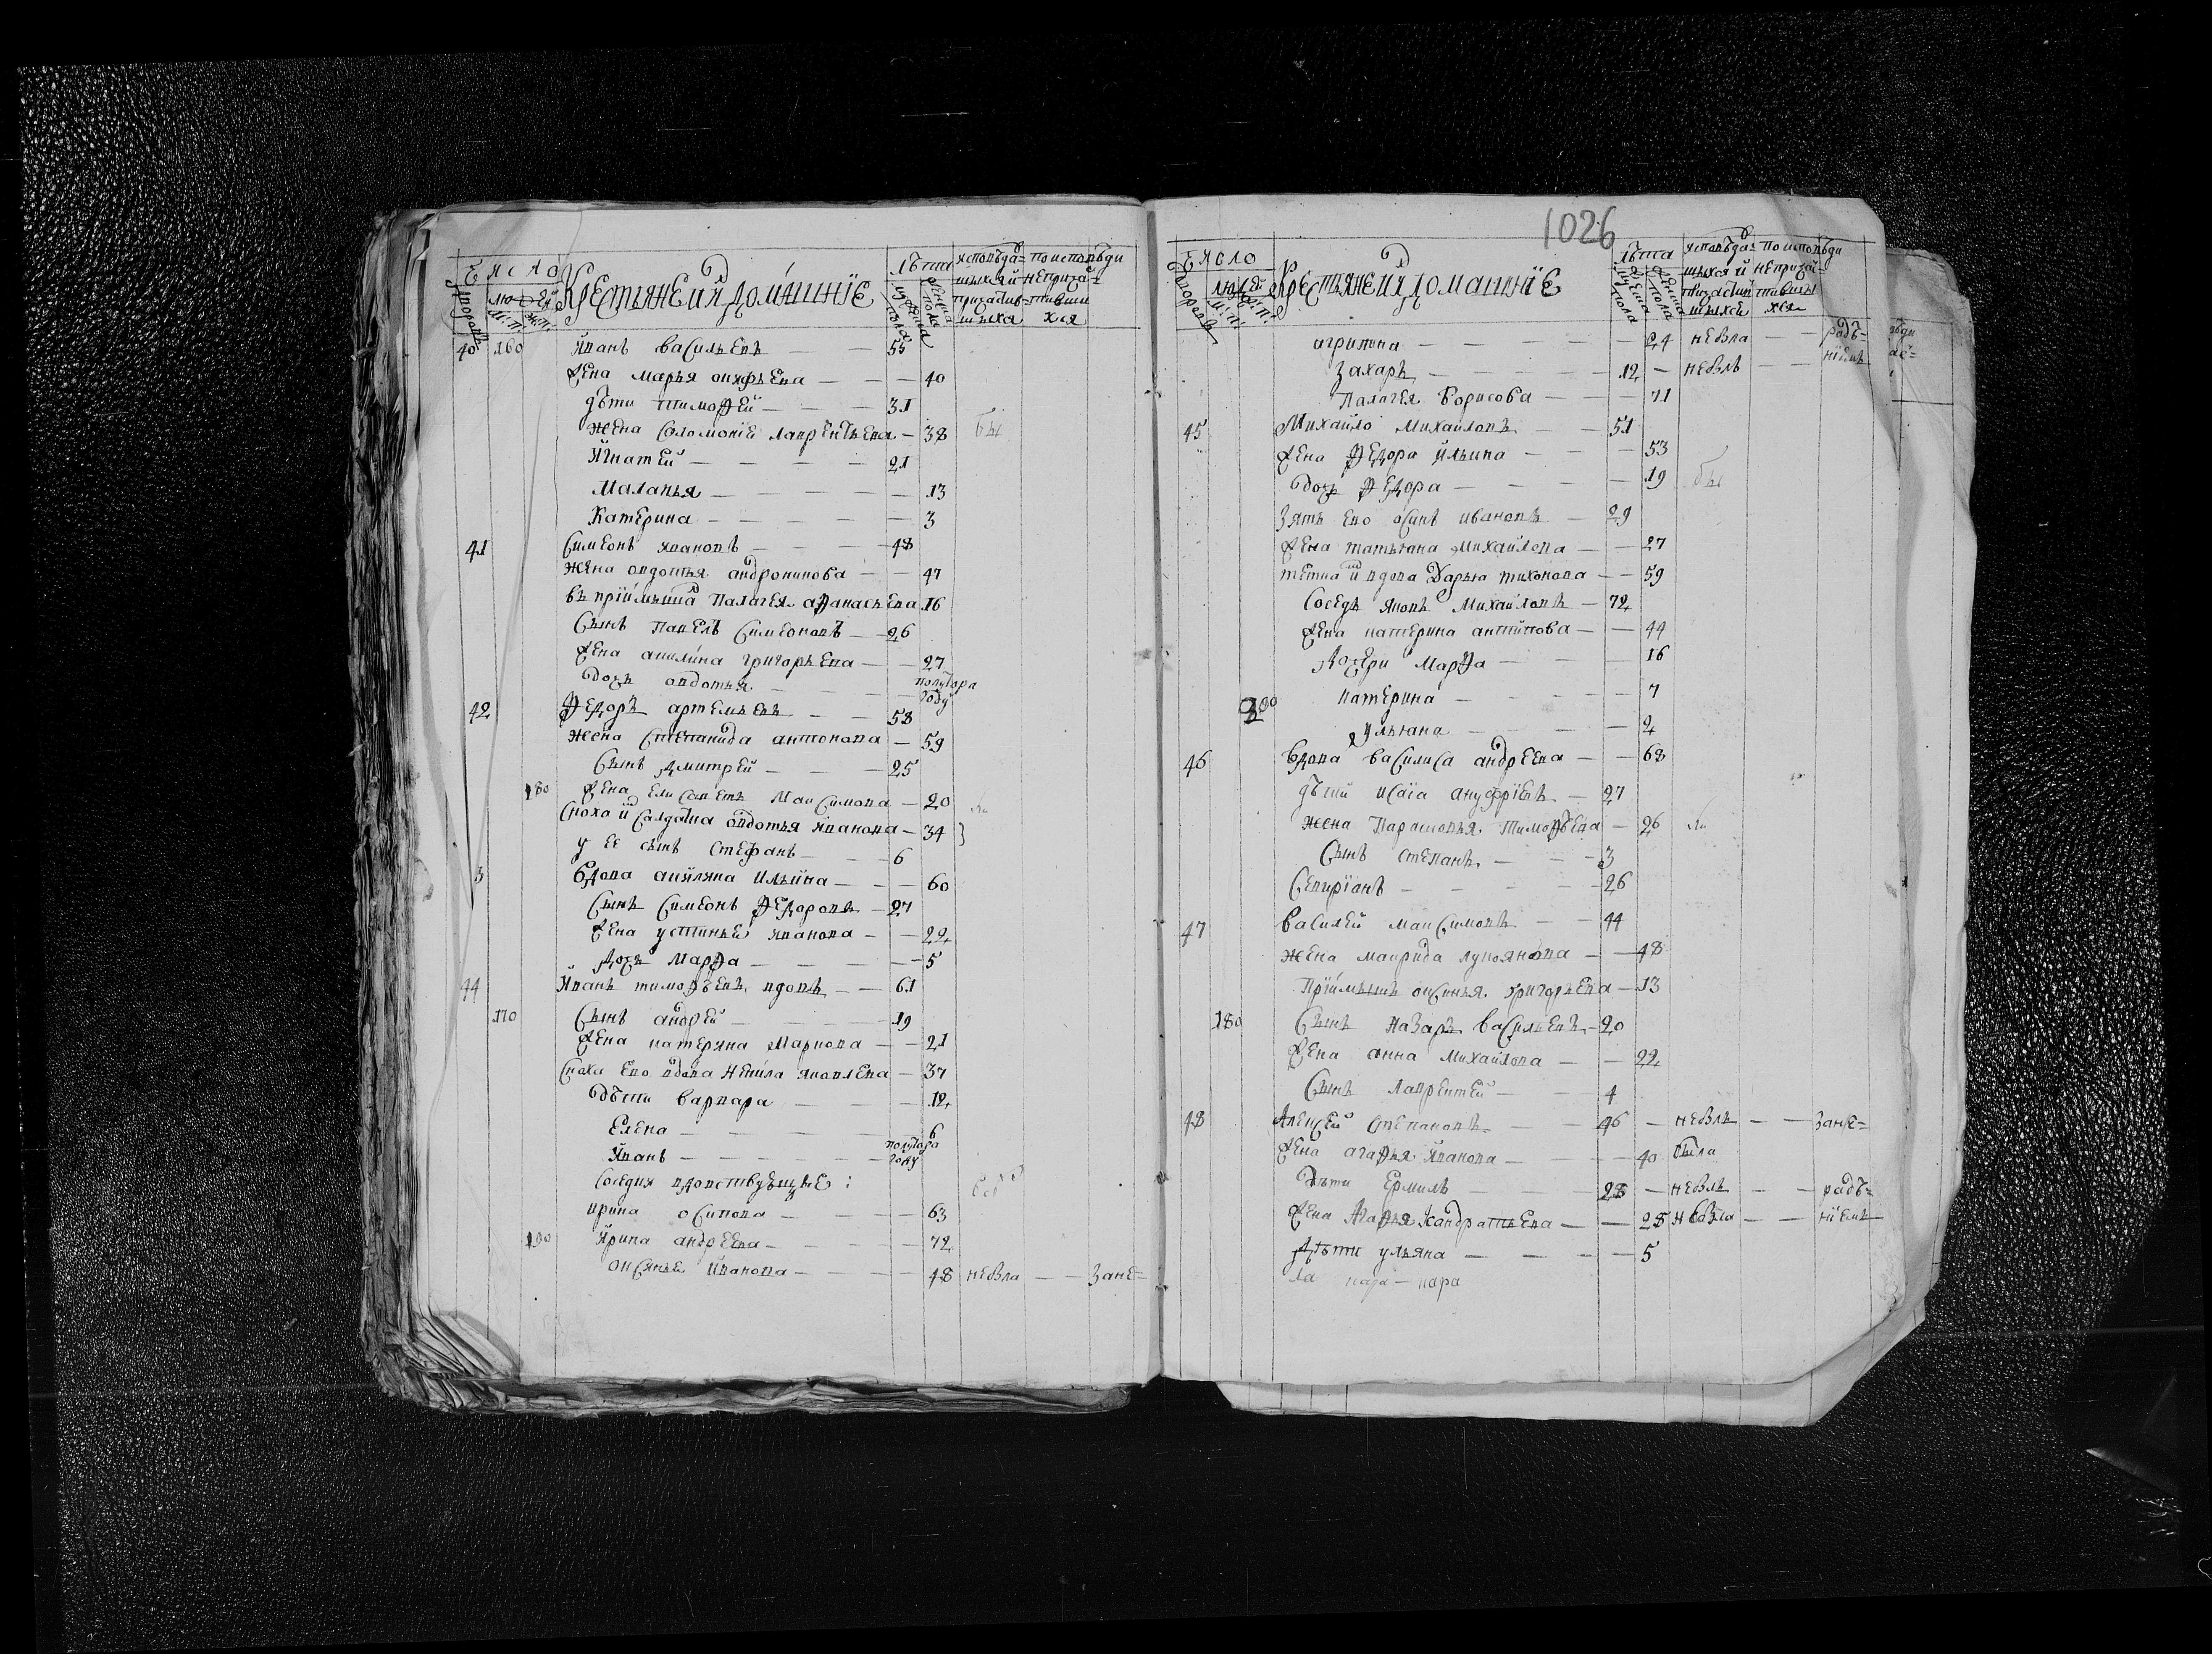 Число
дворовъ
людей
м.п.
ж.п.
Крестьяне и ихъ домашнїе
лѣта
мужеска пола
женска пола
исповѣда=
выхся и
причастив=
шыхся
по исповѣди
непричас=
тивши
хся
40 160 Иванъ васильевъ — — 55
жена марья онуфрьева — — 40
дѣти тимофей — — — 31
жена Соломонїе лаврентьева — 38
Игнатей — — — — 21
Маланья — — — — 13
Катерина — — — — 3
41 Симеонъ ивановъ — — — 48
жена овдотья андроникова — — 47
въ прїимыша Палагея афанасьева 16
Сынъ Павелъ Симеоновъ — 26
жена акилина григорьева — — 27
дочь овдотья — — — полутора году
42 Федоръ артемьевъ — — 58
жена Степанида антонова — 59
Сынъ дмитрей — — — 25
180 жена елисаветъ Максимова — 20
Сноха Салдатка овдотья иванова — 34
у ее сынъ стефанъ — — — 6
3 вдова акиляна Ильина — — — 60
Сынъ Симеонъ Федоровъ — 27
жена устинье иванова — — 22
дочь Марфа — — — — 5
44 Иванъ тимофѣевъ вдовъ — — 61
170 Сынъ андрей — — — — 19
жена катеряна Маркова — — 21
Сноха ево вдова Ненила яковлева — 37
дѣти варвара — — — 12
Елена — — — — — 6
Иванъ — — — — — полутора году
Соседки вдовствуѣщые :
ирина осипова — — — 63
190 Ирина андреева — — — — 72
оксинье Иванова — — — — 48 небыла — — зане=
1026
Число
дворовъ
людей
м.п.
ж.п.
Крестьяне и ихъ домашнїе
лѣта
мужеска пола
женска пола
исповѣда=
выхся и
причастив
шыхся
по исповѣди
непричас=
тившы
хся
агрипина — — — — — 24 небыла — радѣ=
Захаръ — — — — — 12 — небылъ — — нїемъ
Палагея борисова — — — 71
45 Михайло Михайловъ — — 51
жена Федора Ильина — — — 53
дочь Федора — — — — 19
Зять ево осипъ ивановъ — 29
жена татьяна Михайлова — — 27
тетка и вдова Дарья тихонова — — 59
Соседъ яковъ Михайловъ — 72
жена катерина антипова — — 44
дочери Марфа — — — 16
200 катерина — — — — — 7
ульяна — — — — 2
46 вдова василиса андреева — — 68
дѣти исаїа ануфрїевъ — 27
жена Парасковья Тимофѣева — 26
Сынъ степанъ — — — 3
Севирїанъ — — — — 26
47 василей максимовъ — — 44
жена маврида лукоянова — — 48
Прїимышъ оксинья григорьева — 13
180 Сынъ Назаръ васильевъ — 20
жена анна михайлова — — 22
Сынъ лаврентей — — 4
48 Алексей степановъ — — 46 — небылъ — — зане=
жена агафья Иванова — — — 40 была
дѣти ермилъ — — — 28 — небылъ — — радѣ=
жена Кондратьева — — 25 небыла — — нїемъ
дѣти ульяна — — — — 5